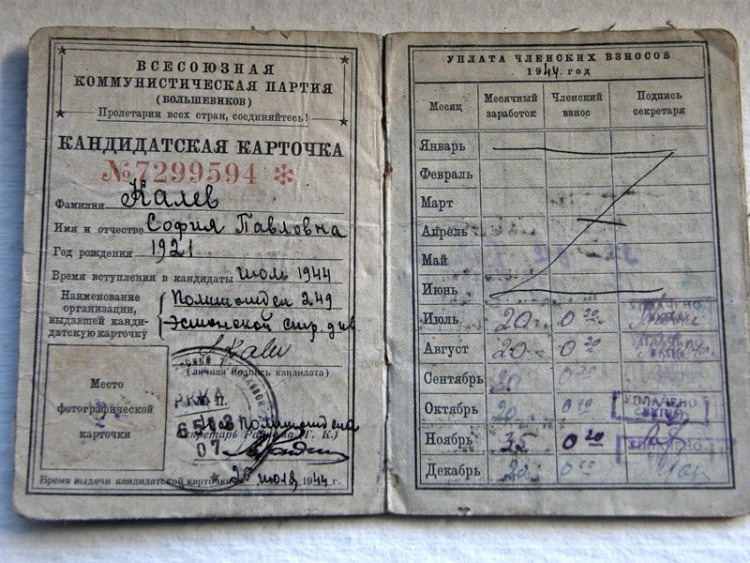 ВСЕСОЮЗНАЯ
КОММУНИСТИЧЕСКАЯ ПАРТИЯ
(БОЛЬШЕВИКОВ)
Пролетарии всех стран, соединяйтесь!
КАНДИДАТСКАЯ КАРТОЧКА
№7299594 *
Фамилия Калев
Имя и отчество София Павловна
Год рождения 1921
Время вступления в кандидаты июль 1944
Наименование организации, выдавшей кандидатскую карточку
Политотдел 249
Эстонской стр. див
(личная подпись кандидата)
Место
фотографической
карточки
Нач политотдела
Секретарь Райкома (Г. К.)
Время выдачи кандидатской карточки 20 июля 1944 г.
УПЛАТА ЧЛЕНСКИХ ВЗНОСОВ
1944 год
Месяц Месячный заработок Членский взнос Подпись секретаря
Январь
Февраль
Март
Апрель
Май
Июнь
Июль 20 0 20
Август 20 0 20
Сентябрь 20
Октябрь 20 0 20 УПЛАЧЕНО
Ноябрь 35 0 20
Декабрь 20 0 20